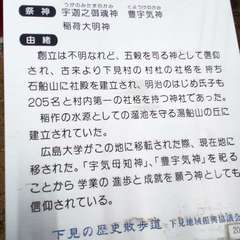 うがのみたまのかみ とようけのかみ
祭神 宇迦之御魂神 豊宇気神
稲荷大明神
由緒
創立は不明なれど、五穀を司る神として信仰
され、古来より下見村の村社の社格を持ち
石船山に社殿を建立され、明治のはじめ氏子も
205名と村内第一の社格を持つ神社であった。
稲作の水源としての溜池を守る湯船山の丘に
建立されていた。
広島大学がこの地に移転された際、現在地に
移された。「宇気母知神」、「豊宇気神」を祀る
ことから学業の進歩と成就を願う神としても
信仰されている。
下見の歴史散歩道 下見地域振興協議会
20